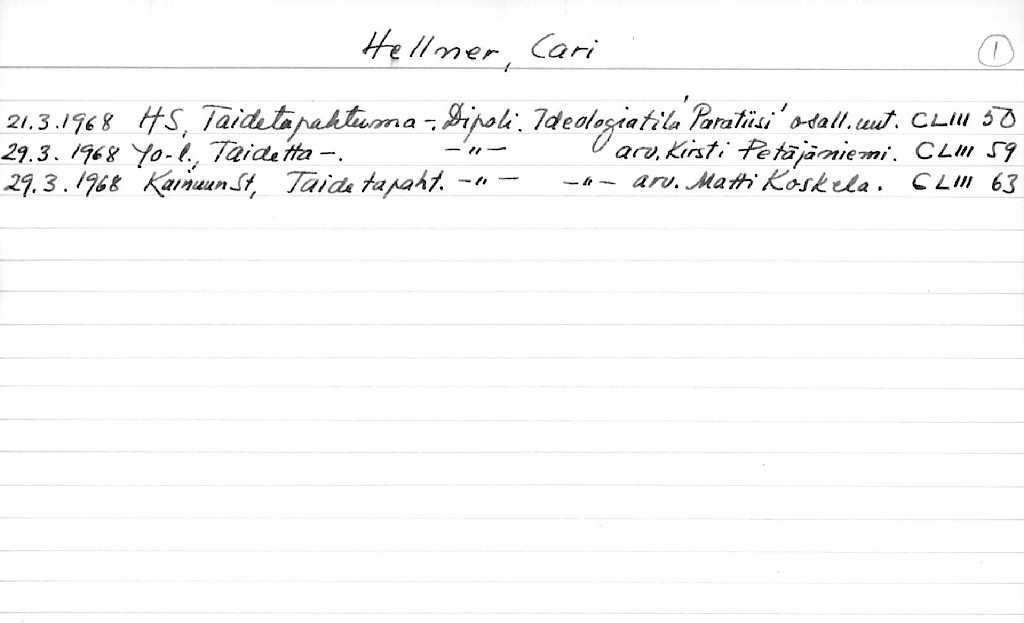 Hellner, Cari 1
21.3.1968 HS, Taidetapahtuma -. Dipoli. Ideologiatila 'Paratiisi' osall. uut. CLIII 50
29.3.1968 Yo-l., Taidetta -. -"- arv. Kirsti Petäjäniemi. CLIII 59
29.3.1968 Kainuun St, Taidetapaht. -"- -"- arv. Matti Koskela. CLIII 63